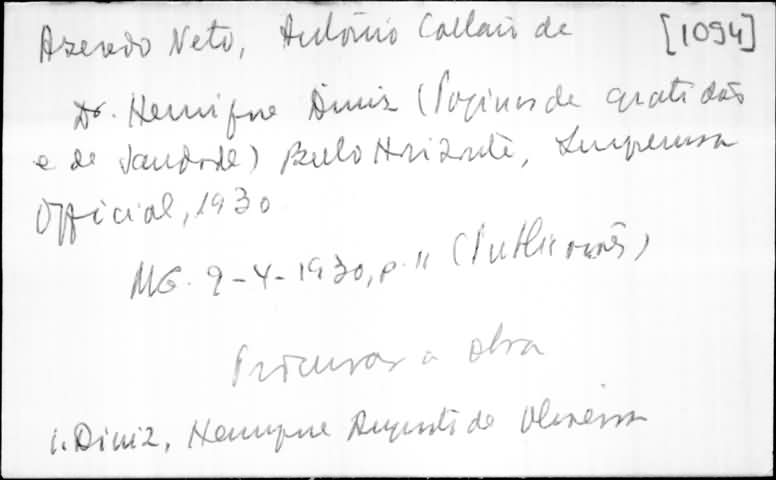 Azeredo Neto, Antônio Collaço de [1094]
Dr. Henrique Diniz (Paginas de gratidão
e de saudade) Bello Horizonte, Imprensa
Official, 1930
MG. 9-4-1930, p. 11 (Publicações)
Procurar a obra
1. Diniz, Henrique Augusto de Oliveira